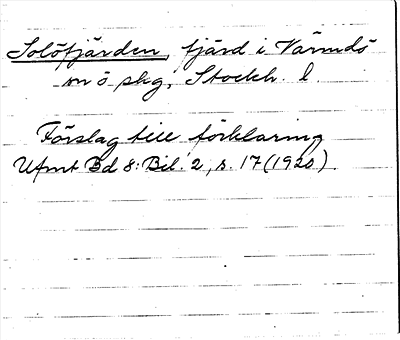 Solöfjärden, fjärd i Värmdö
sn o skg, Stockh. l.
Förslag till förklaring
Ufmt Bd 8: Bil. 2, s. 17 (1920).